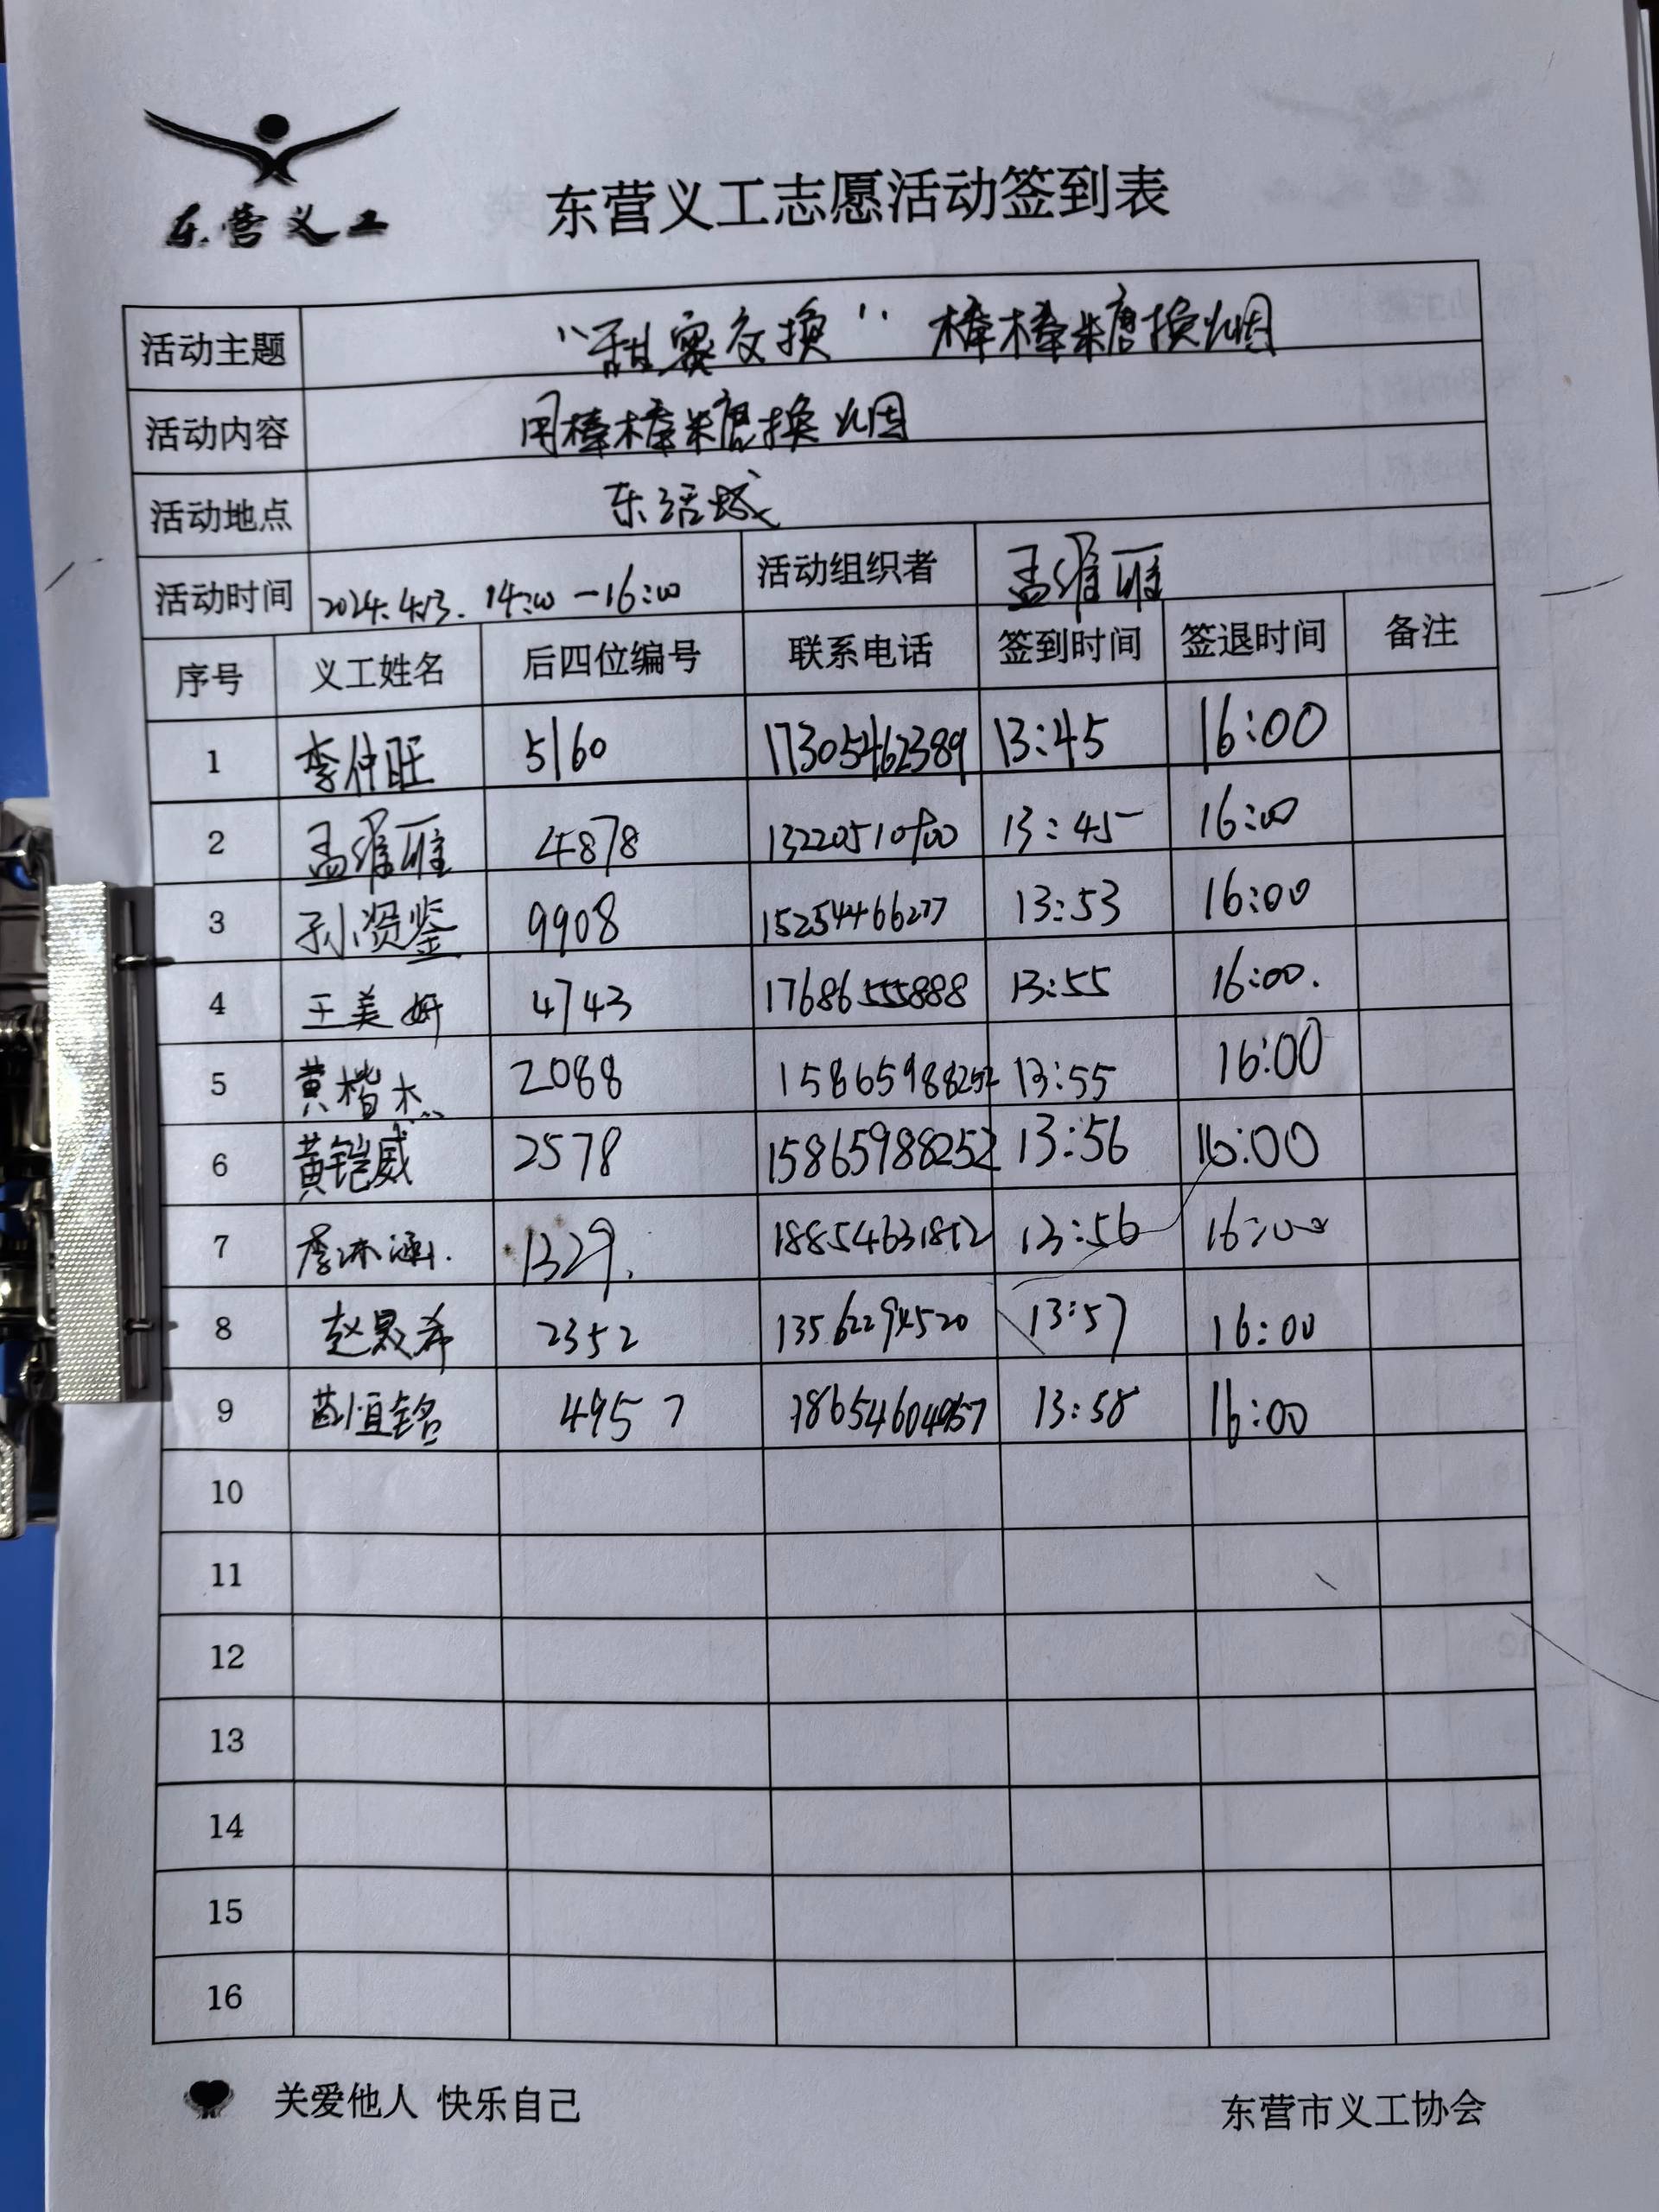 东营义工
东营义工志愿活动签到表
活动主题 "甜蜜交换" 棒棒糖换烟
活动内容 用棒棒糖换烟
活动地点 东活城
活动时间 2024.4.13. 14:00-16:00 活动组织者 孟维雁
序号 义工姓名 后四位编号 联系电话 签到时间 签退时间 备注
1 李仲旺 5160 17305462389 13:45 16:00
2 孟维雁 4878 13:45 16:00
3 孙贤鉴 9908 15254466277 13:53 16:00
4 王美妍 4743 17686555888 13:55 16:00.
5 黄楷杰 2088 15865988252 13:55 16:00
6 黄铠威 2578 15865988252 13:56 16:00
7 李沐涵. 1329. 13:56 16:00
8 赵晟希 2352 13562294520 13:57 16:00
9 恒铭 4957 18654604957 13:58 16:00
10
11
12
13
14
15
16
关爱他人 快乐自己 东营市义工协会